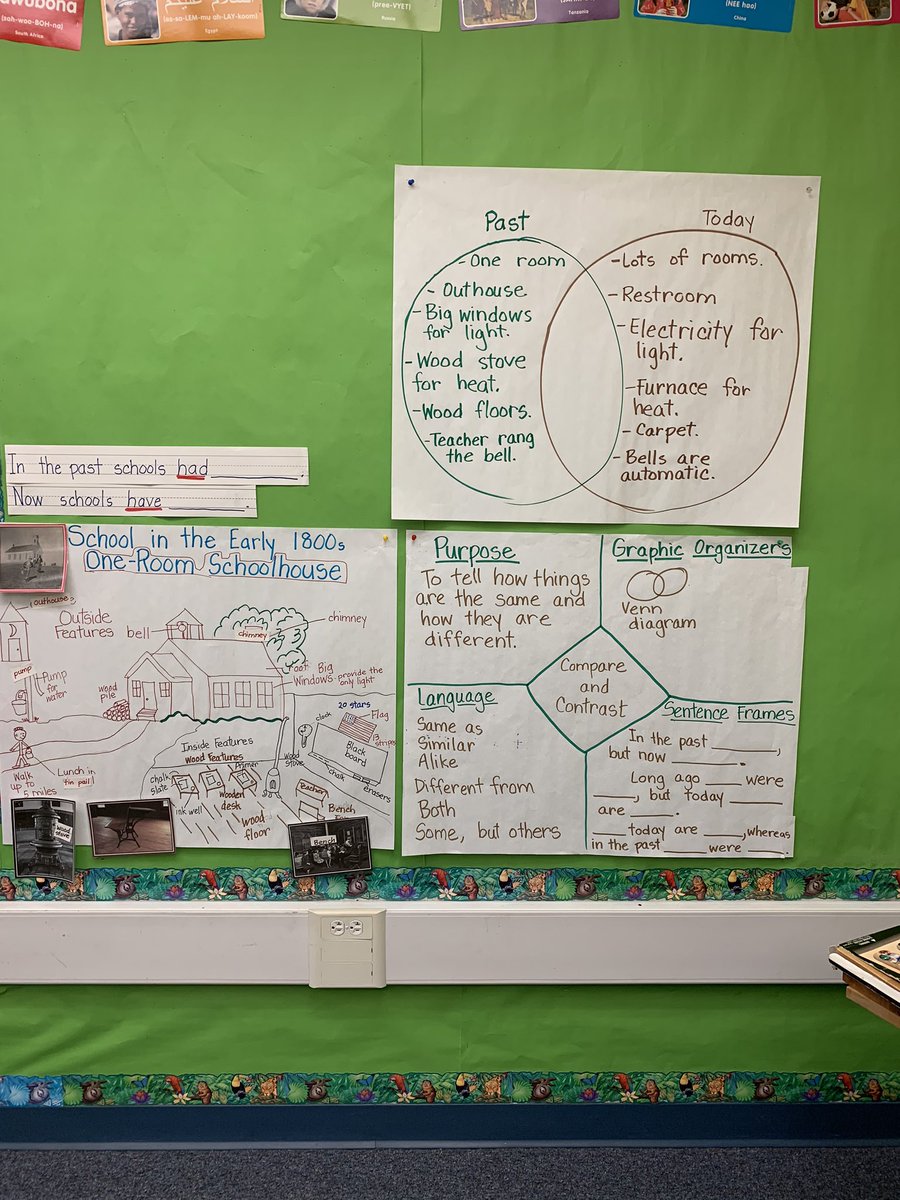 awubona
(sah-woo-BOH-na)
South Africa
(as-so-LEM-mu ah-LAY-koom)
Egypt
(pree-VYET)
Russia
Tanzania
(NEE hao)
China
Past
Today
- One room
- Outhouse
- Big windows
for light.
- Wood stove
for heat.
- Wood floors.
- Teacher rang
the bell.
- Lots of rooms.
- Restroom
- Electricity for
light.
- Furnace for
heat.
- Carpet.
- Bells are
automatic.
In the past schools had ________.
Now schools have ________.
School in the Early 1800s
One-Room Schoolhouse
outhouse
Outside
Features
bell
chimney
chimney
Big
Windows provide the
only light
pump
Pump
for
water
wood
pile
Walk
up to
5 miles
Lunch in
tin pail
Inside Features
Wood Features
chalk
slate
Primer
ink well
Wooden
desk
wood
floor
Wood
stove
clock
20 stars
Flag
13
stripes
Black
board
chalk
erasers
Bench
Wood
stove
Bench
Purpose
To tell how things
are the same and
how they are
different.
Graphic Organizer's
Venn
diagram
Compare
and
Contrast
Language
Same as
Similar
Alike
Different from
Both
Some, but others
Sentence Frames
In the past ______,
but now ______.
Long ago ____ were
____, but today ____
are ____.
____ today are ____, whereas
in the past ____ were ____